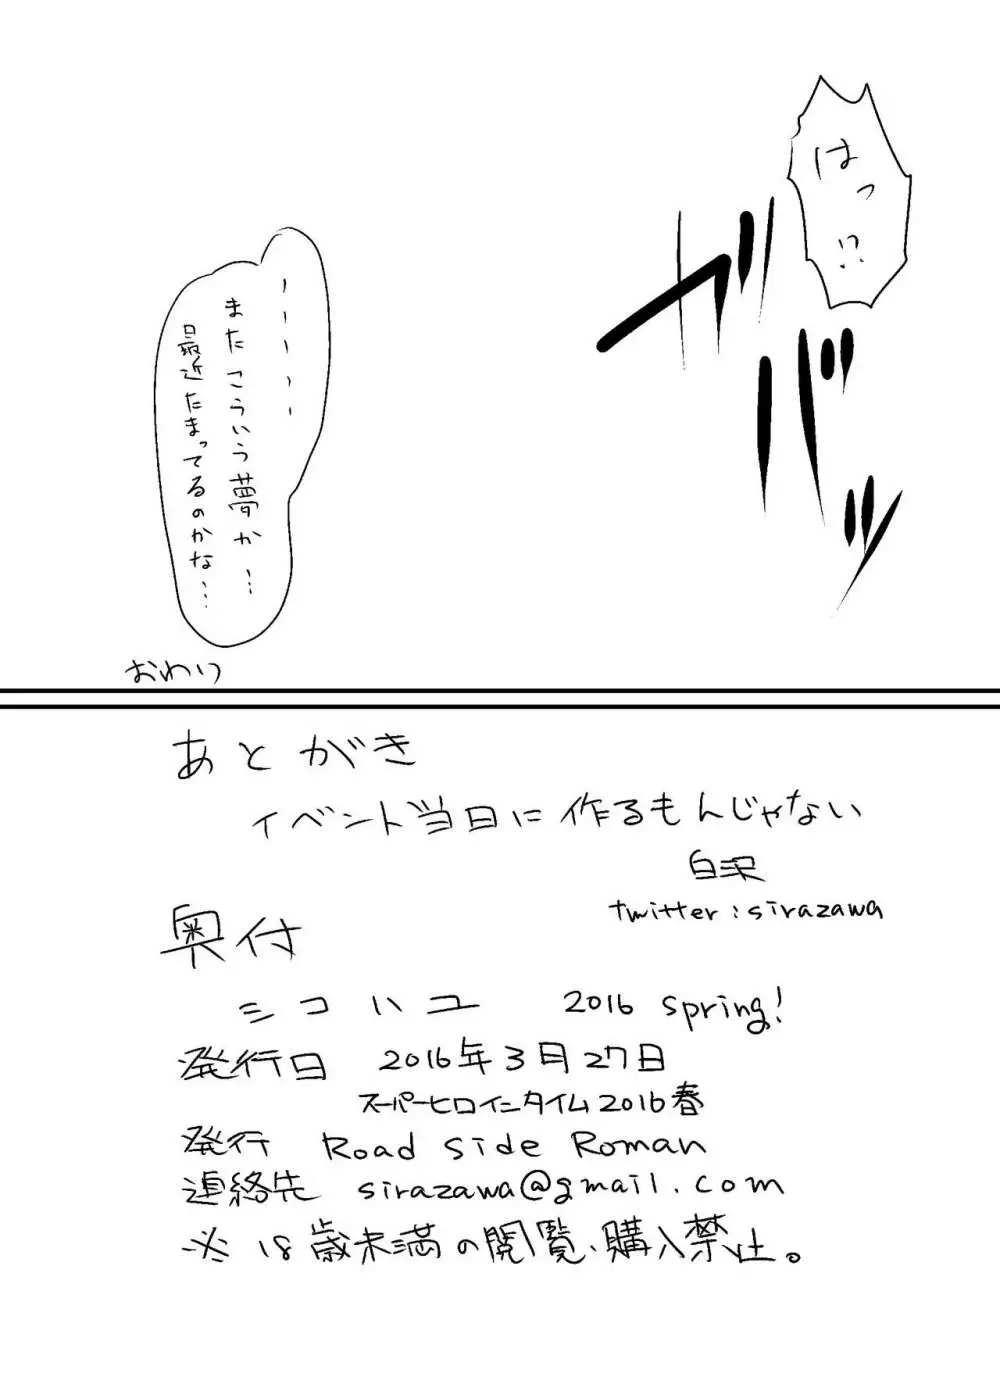 はっ!?
ガバッ
……
またこういう夢か…
最近たまってるのかな…
おわり
あとがき
イベント当日に作るもんじゃない
白沢
twitter:sirazawa
奥付
シコハユ 2016 spring!
発行日 2016年3月27日
スーパーヒロインタイム2016春
発行 Road Side Roman
連絡先 sirazawa@gmail.com
※18歳未満の閲覧、購入禁止。